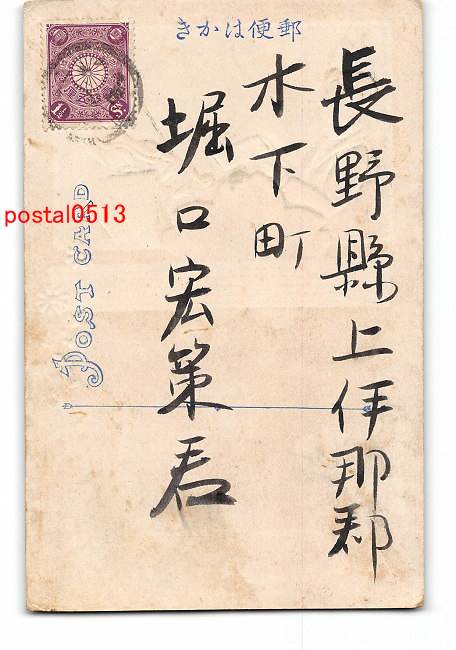 郵便はかき
長野縣上伊那郡
木下町
堀口宏策君
POST CARD
postal0513